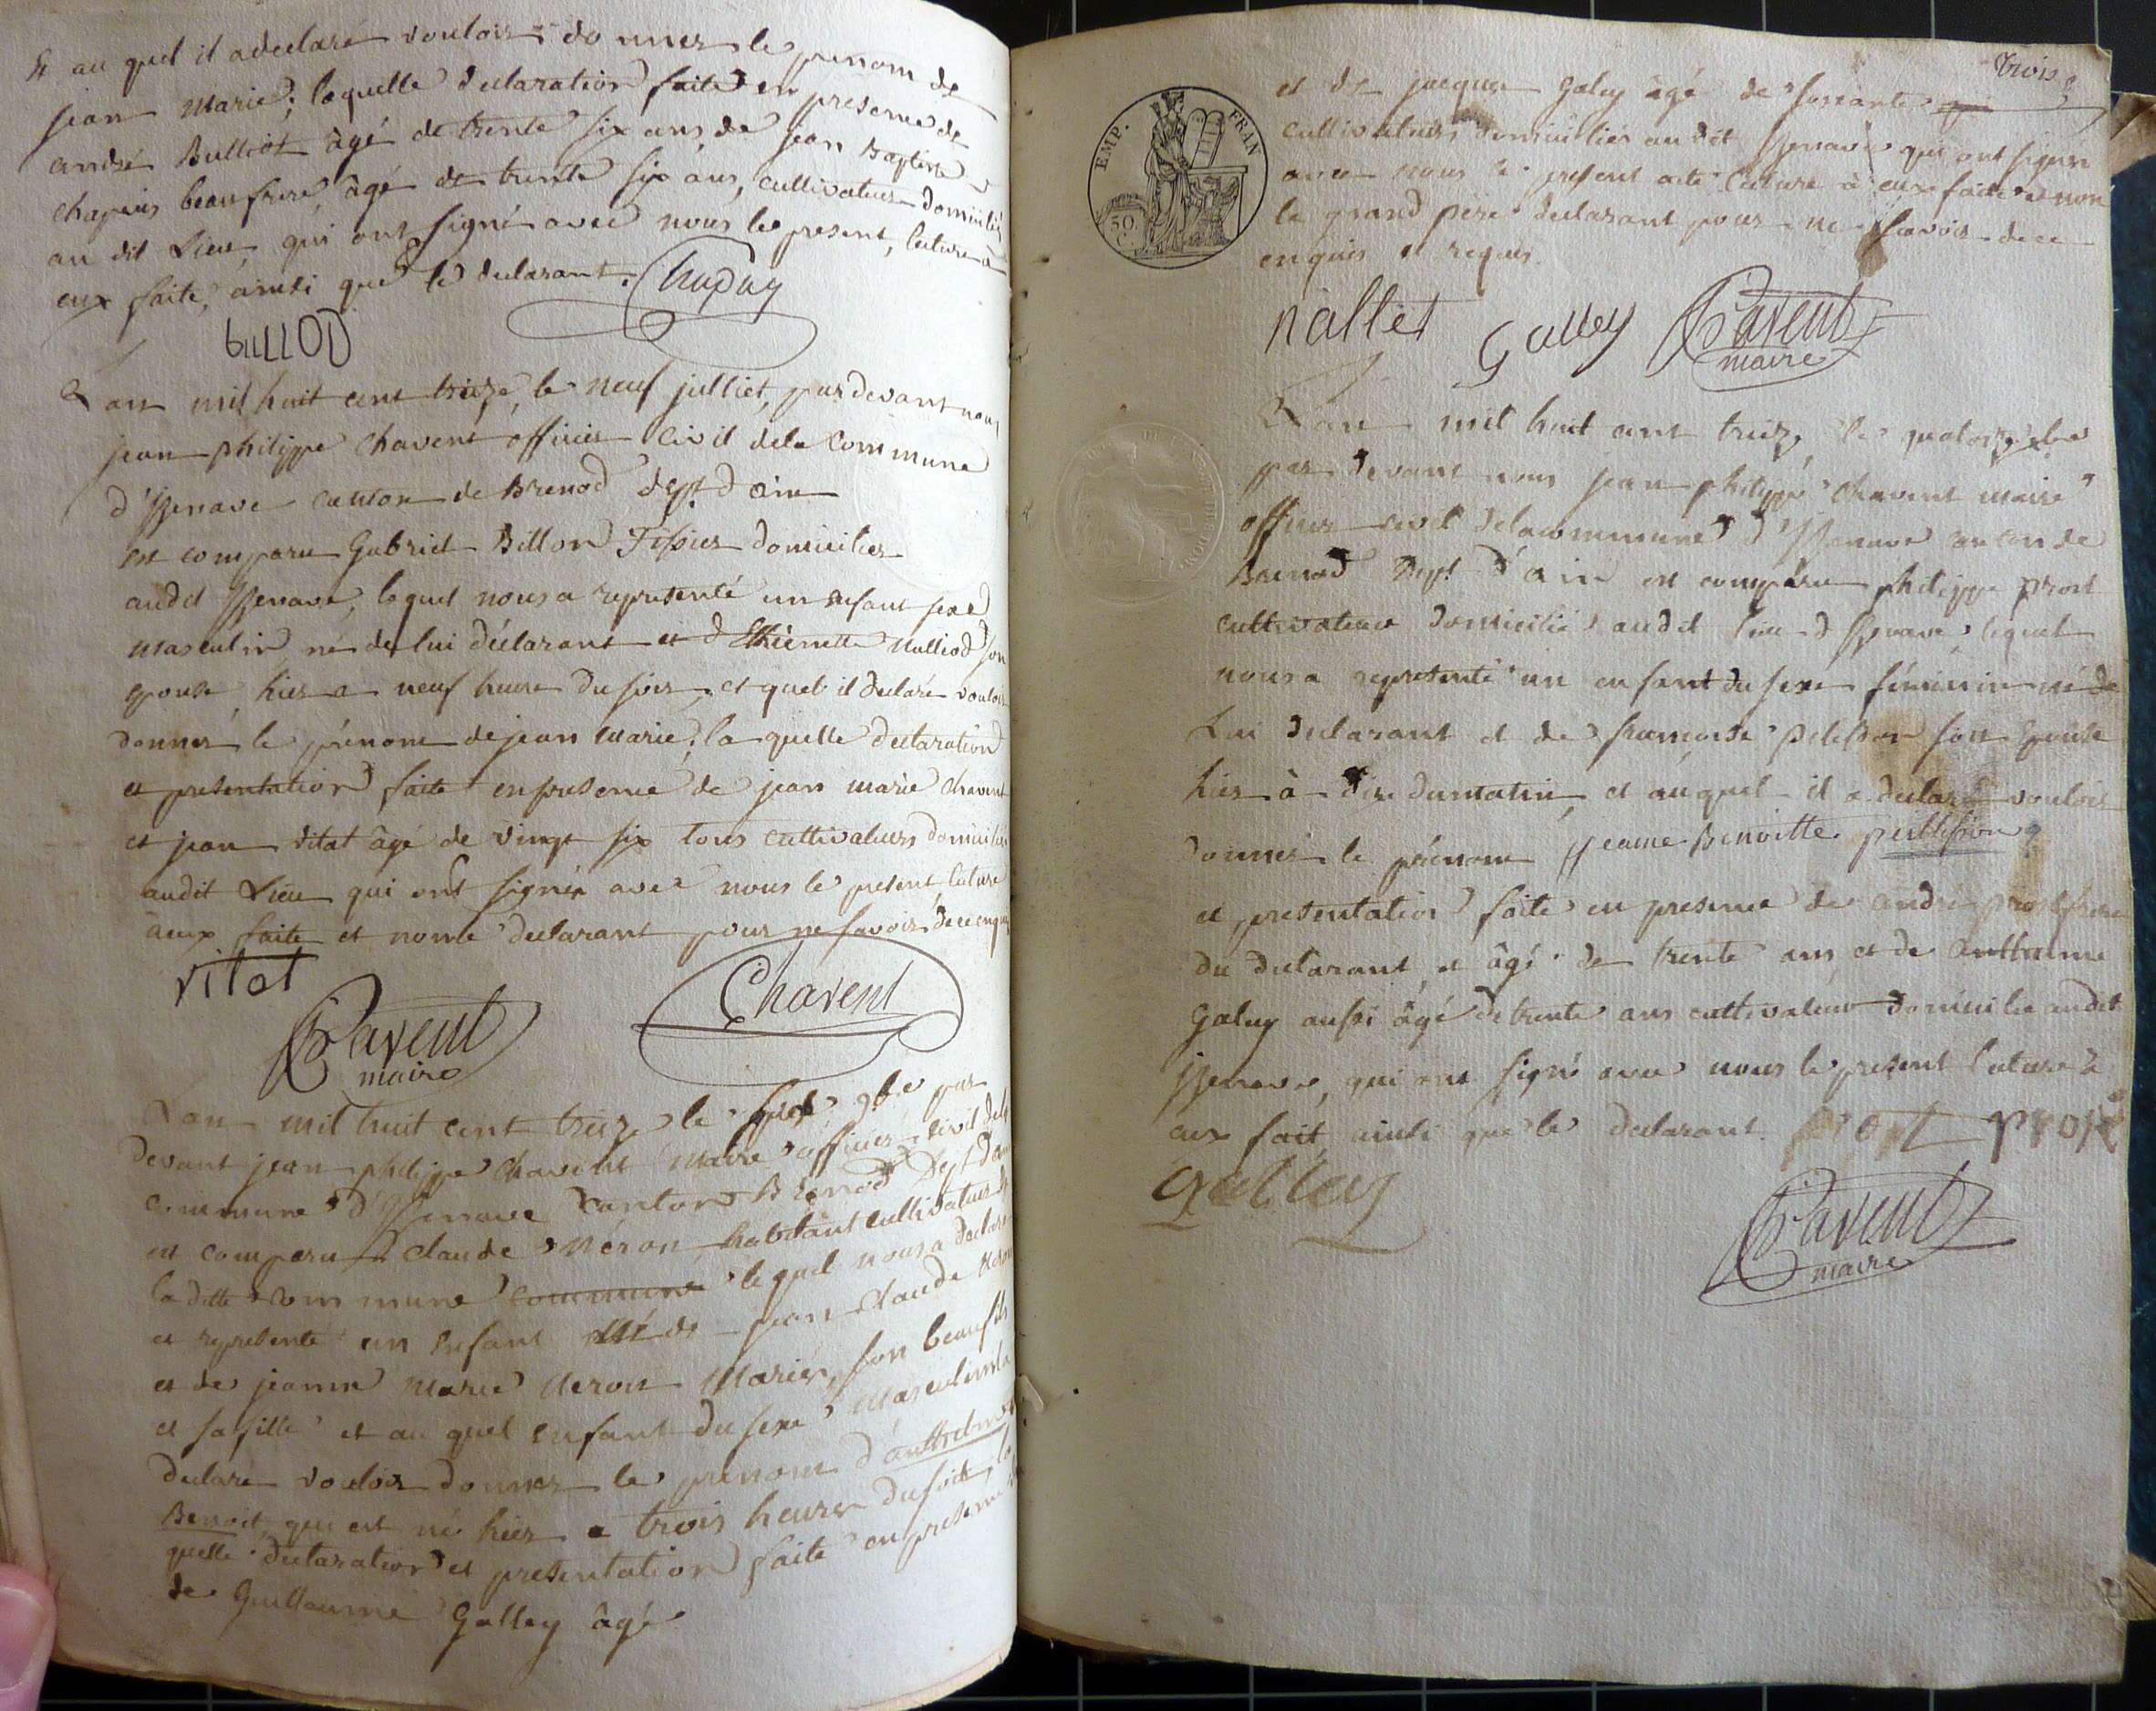 et au quel il a declaré vouloir donner le prenom de
jean Marie; laquelle declaration faite en presence de
andré Bulliot âgé de trente six ans, de jean Baptiste
chapuis beaufrere, âgé de trente six ans, cultivateurs domiciliés
au dit Lieu, qui ont signé avec nous le present, lecture à
eux faite, ainsi que le declarant. Chapuy
BILLOD
L'an mil huit cent treize, le neuf julliet, par devant nous
jean philippe Chavent officier Civil dela Commune
d'Izenave canton de Brenod dept d'ain
est comparu Gabriel Billon Tissier domicilier
audit Izenave, lequel nous a representé un enfant sexe
masculin, né de lui déclarant et d'Ethienette Nalliod son
epouse, hier a neuf heure du soir, et quel il declaré vouloir
donner le prénom de jean Marie; la quelle declaration
et presentation faite en presence de jean marie Chavent
et jean vitat âgé de vingt six tous cultivateurs domiciliés
audit Lieu qui ont signés avec nous le present, lecture
à eux faite et non le declarant pour ne savoir de ce enquis
vitat
Chavent
Chavent
maire
L'an mil huit cent treize le 9bre par
devant jean philippe Chavent Maire officier civil dela
commune d'Izenave Canton Brenod Dept d'ain
est comparu Claude Néron habitant cultivateur de
la ditte commune commune lequel nous a declaré
et representé un enfant né de jean Claude
et de jeanne Marie Neron Mariés, son beaufils
et sa fille et au quel enfant du sexe masculin il a
declaré vouloir donner le prenom d'anthelme
Benoit, qui est né hier a trois heures du soir, la
quelle declaration et presentation faite en presence
de Guillaume Galley âgé
Trois
et de jacques Galey âgé de soixante
EMP. FRAN
50 C.
cultivateurs domiciliés au dit Izenave qui ont signés
avec nous le present acte lecture à eux faite et non
le grand père declarant pour ne savoir de ce
enquis et requis.
nallet Galley Chavent
maire
L'an mil huit cent treize, le quatorze
par devant nous jean philippe Chavent maire
officier civil dela commune d'Izenave canton de
Brenod Dept d'ain est comparu philippe prost
cultivateur domicilié audit lieu d'Izenave, lequel
nous a representé un enfant du sexe féminin né de
Lui declarant et de francoise pelisson son Epouse
hier à dix du matin, et auquel il a declaré vouloir
donner le prénom jeanne Benoitte
et presentation faite en presence de andré prost frere
du declarant, et âgé de trente ans, et de anthelme
Galey aussi âgé de trente ans cultivateurs domicilie audit
Izenave, qui ont signé avec nous le present lecture à
eux fait, ainsi que le declarant. prost prost
galley
Chavent
maire